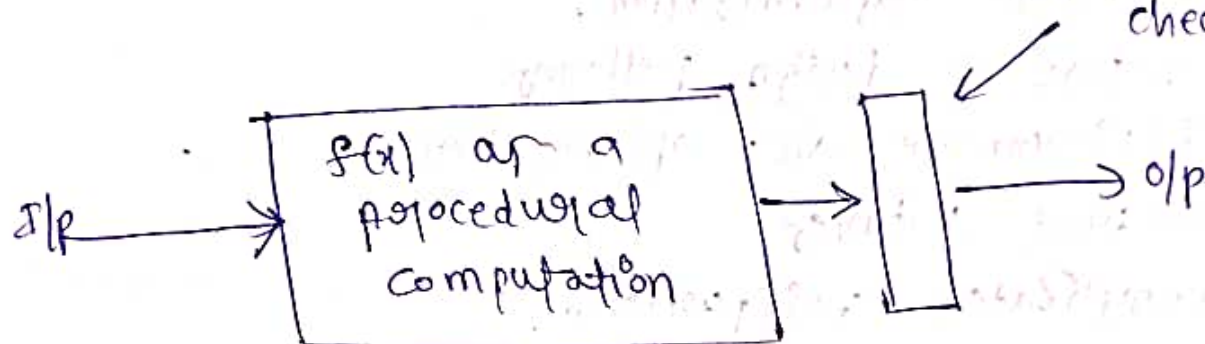 chec
f(x) as a
procedural
computation
I/p
o/p